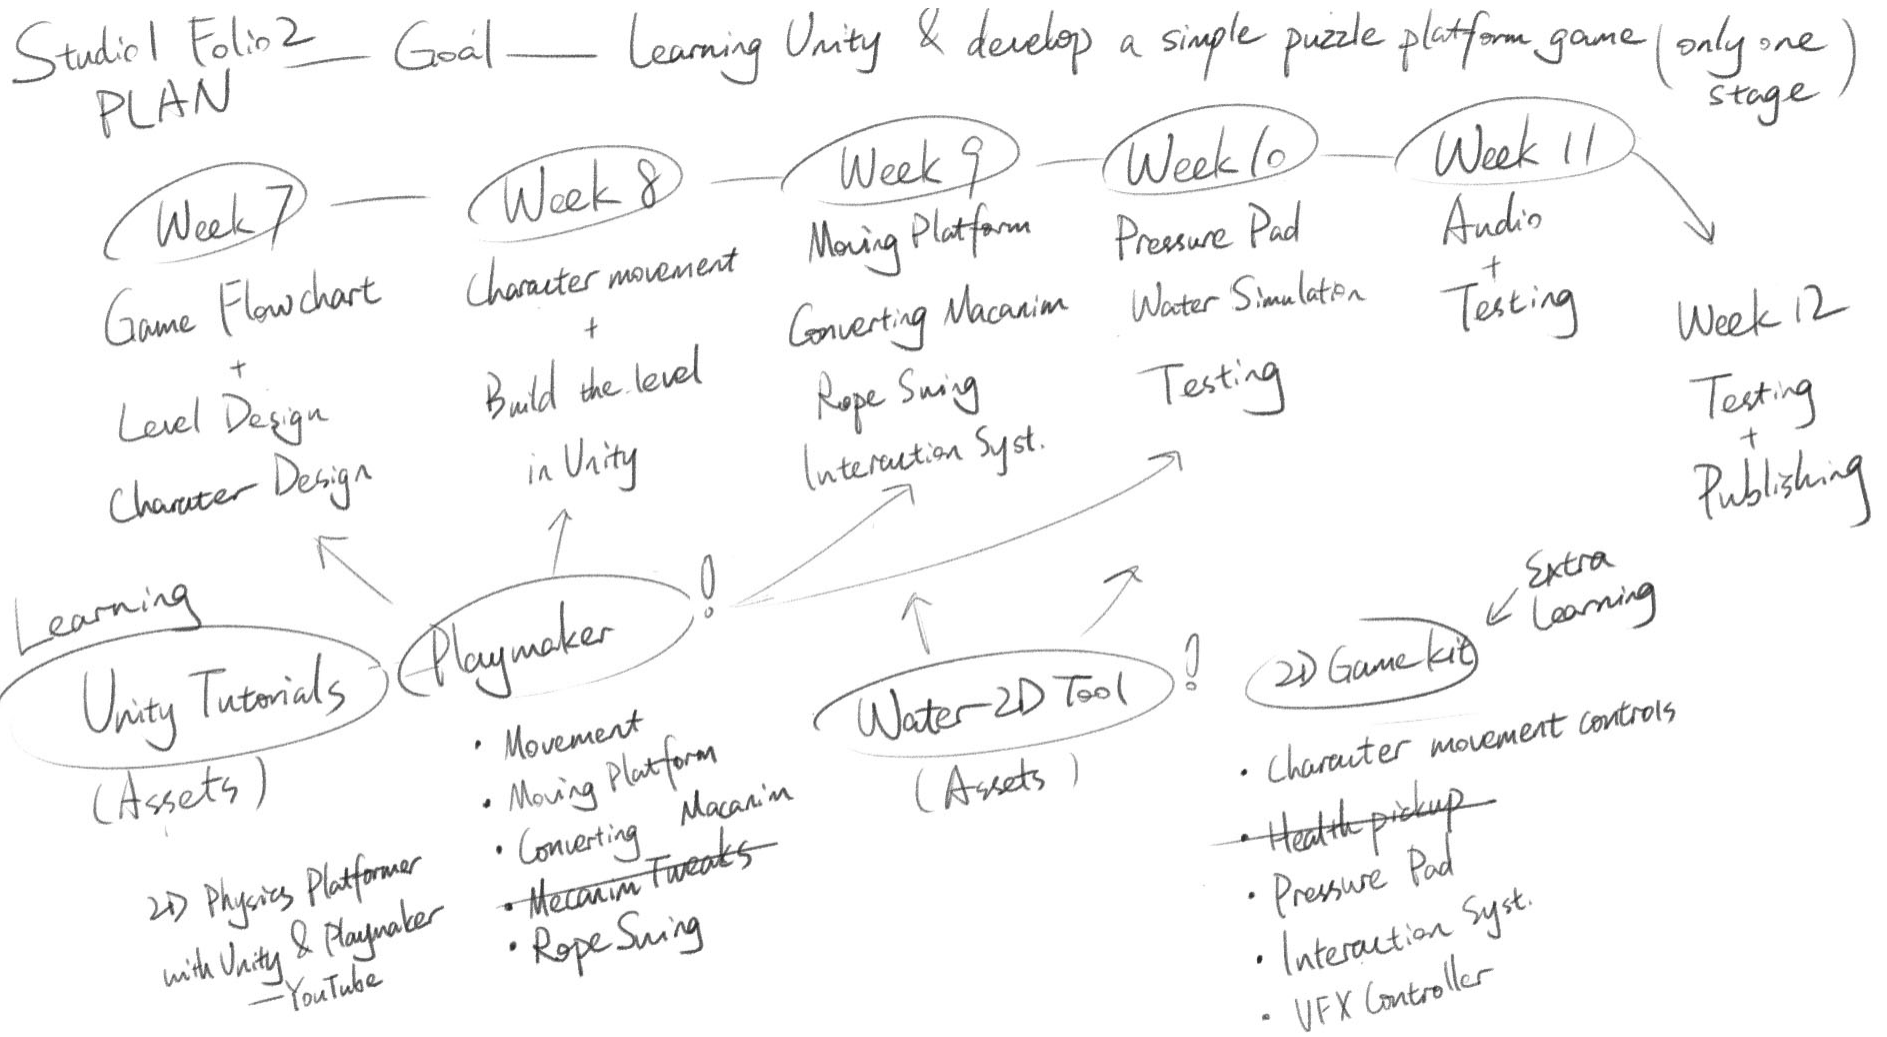 Studio1 Folio2 — Goal — Learning Unity & develop a simple puzzle platform game (only one stage)
PLAN
Week 7
Game Flowchart
+
Level Design
Character Design
Week 8
Character movement
+
Build the level
in Unity
Week 9
Moving Platform
Converting Macanim
Rope Swing
Interaction Syst.
Week 10
Pressure Pad
Water Simulation
Testing
Week 11
Audio
+
Testing
Week 12
Testing
+
Publishing
Learning
Unity Tutorials
(Assets)
2D Physics Platformer
with Unity & Playmaker
— YouTube
Playmaker !
• Movement
• Moving Platform
• Converting Macanim
• Mecanim Tweaks
• Rope Swing
Water 2D Tool !
(Assets)
Extra
Learning
2D Game kit
• Character movement controls
• Health pickup
• Pressure Pad
• Interaction Syst.
• VFX Controller